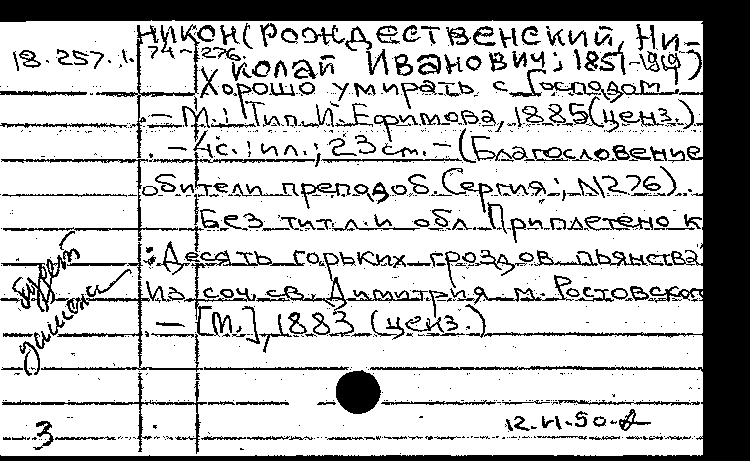 НИКОН (РОЖДЕСТВЕНСКИЙ, Ни-
18.257.1. 74-276 КОЛАЙ ИВАНОВИЧ; 1851-1919)
Хорошо умирать с Господом.
. – М.: Тип. И. Ефимова, 1885 (ценз.)
. – 4с.: ил.; 23 см. – (Благословение
обители преподоб. Сергия; N276).
Без тит.л. и обл. Приплетено к
: Десять горьких гроздов пьянства
из соч. св. Димитрия м. Ростовского
. – [М.], 1883 (ценз.)
будет
3